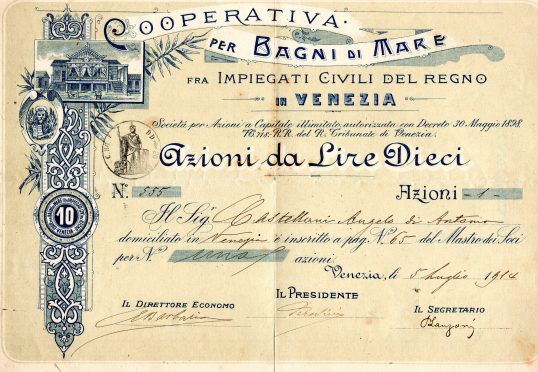 COOPERATIVA
PER BAGNI DI MARE
FRA IMPIEGATI CIVILI DEL REGNO
IN VENEZIA
Società per Azioni a Capitale illimitato autorizzata con Decreto 30 Maggio 1898.
R.R. del R. Tribunale di Venezia.
Azioni da Lire Dieci
N.° 555 Azioni -1-
Il Sig.r Castellani Angelo di Antonio
domiciliato in Venezia è inscritto a pag. N.° 65 del Mastro dei Soci
per N.° una azioni.
10
VENEZIA
Venezia, li 5 luglio 1914
IL DIRETTORE ECONOMO IL PRESIDENTE IL SEGRETARIO